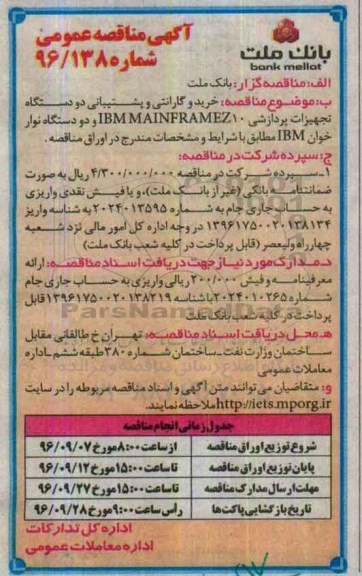 آگهی مناقصه عمومی
شماره ۹۶/۱۳۸
بانک ملت
bank mellat
الف: مناقصه گزار: بانک ملت
ب: موضوع مناقصه: خرید و گارانتی و پشتیبانی دو دستگاه
تجهیزات پردازشی IBM MAINFRAMEZ۱۰ و دو دستگاه نوار
خوان IBM مطابق با شرایط و مشخصات مندرج در اوراق مناقصه.
ج: سپرده شرکت در مناقصه:
۱- سپرده شرکت در مناقصه ۴/۳۰۰/۰۰۰/۰۰۰ ریال به صورت
ضمانتنامه بانکی (غیر از بانک ملت)، و یا فیش نقدی واریزی
به حساب جاری جام به شماره ۲۰۲۴۰۱۳۵۹۵ به شناسه واریز
۱۳۹۶۱۷۵۰۰۲۰۱۳۸۱۳۴ در وجه اداره کل امور مالی نزد شعبه
چهارراه ولیعصر (قابل پرداخت در کلیه شعب بانک ملت)
د: مدارک مورد نیاز جهت دریافت اسناد مناقصه: ارائه
معرفینامه و فیش ۲۰۰/۰۰۰ ریالی واریزی به حساب جاری جام
شماره ۲۰۲۴۰۱۰۲۶۵ با شناسه ۱۳۹۶۱۷۵۰۰۲۰۱۳۸۲۱۹ قابل
پرداخت در کلیه شعب بانک ملت
ه: محل دریافت اسناد مناقصه: تهران خ طالقانی مقابل
ساختمان وزارت نفت - ساختمان شماره ۳۸۰ طبقه ششم - اداره
معاملات عمومی
و: متقاضیان می توانند متن آگهی و اسناد مناقصه مربوطه را در سایت
http://iets.mporg.ir ملاحظه نمایند.
جدول زمانی انجام مناقصه
شروع توزیع اوراق مناقصه از ساعت ۸:۰۰ مورخ ۹۶/۰۹/۰۷
پایان توزیع اوراق مناقصه تا ساعت ۱۵:۰۰ مورخ ۹۶/۰۹/۱۲
مهلت ارسال مدارک مناقصه تا ساعت ۱۵:۰۰ مورخ ۹۶/۰۹/۲۷
تاریخ بازگشایی پاکت ها رأس ساعت ۹:۰۰ مورخ ۹۶/۰۹/۲۸
اداره کل تدارکات
اداره معاملات عمومی